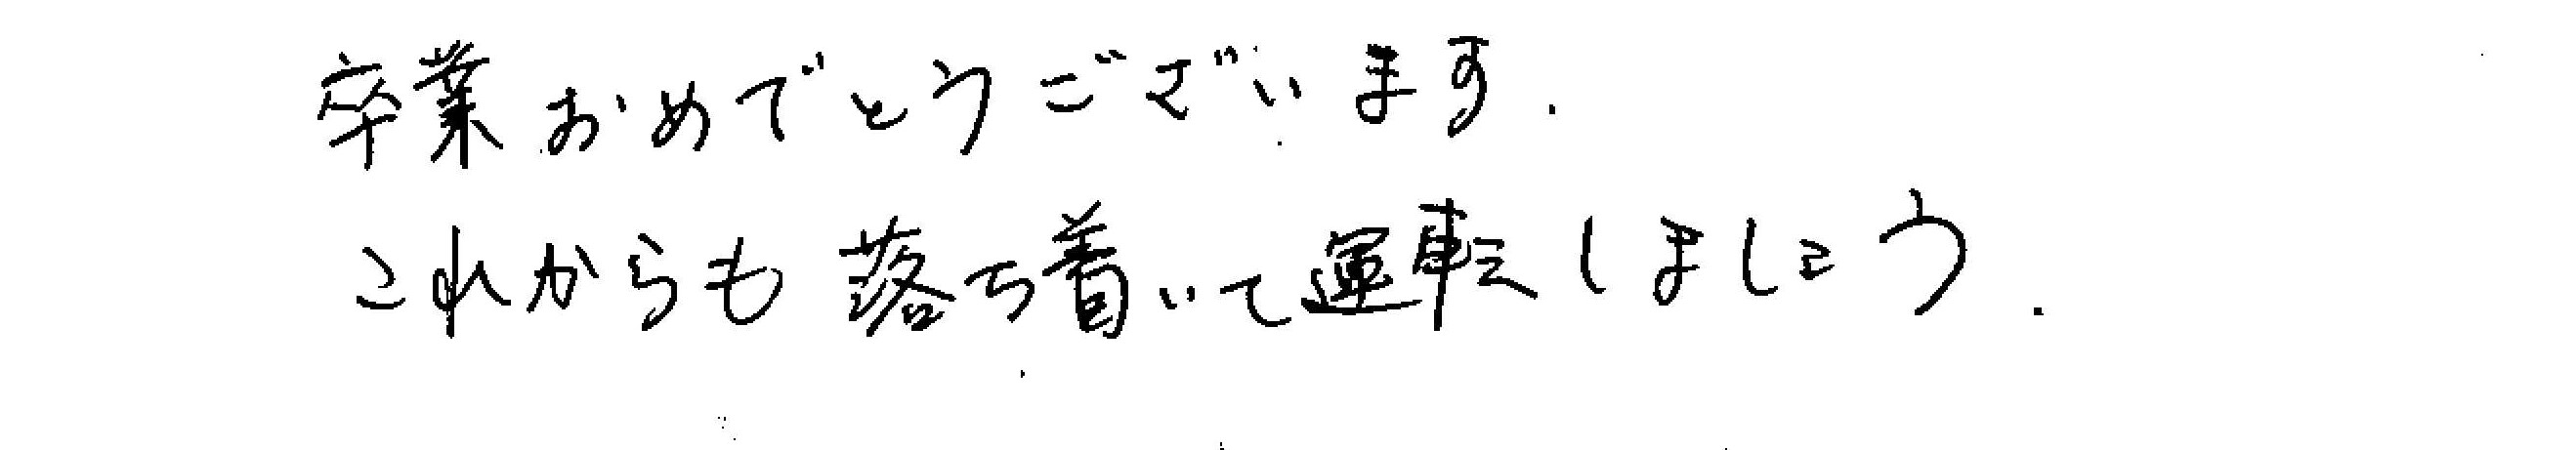 卒業おめでとうございます.
これからも落ち着いて運転しましょう.